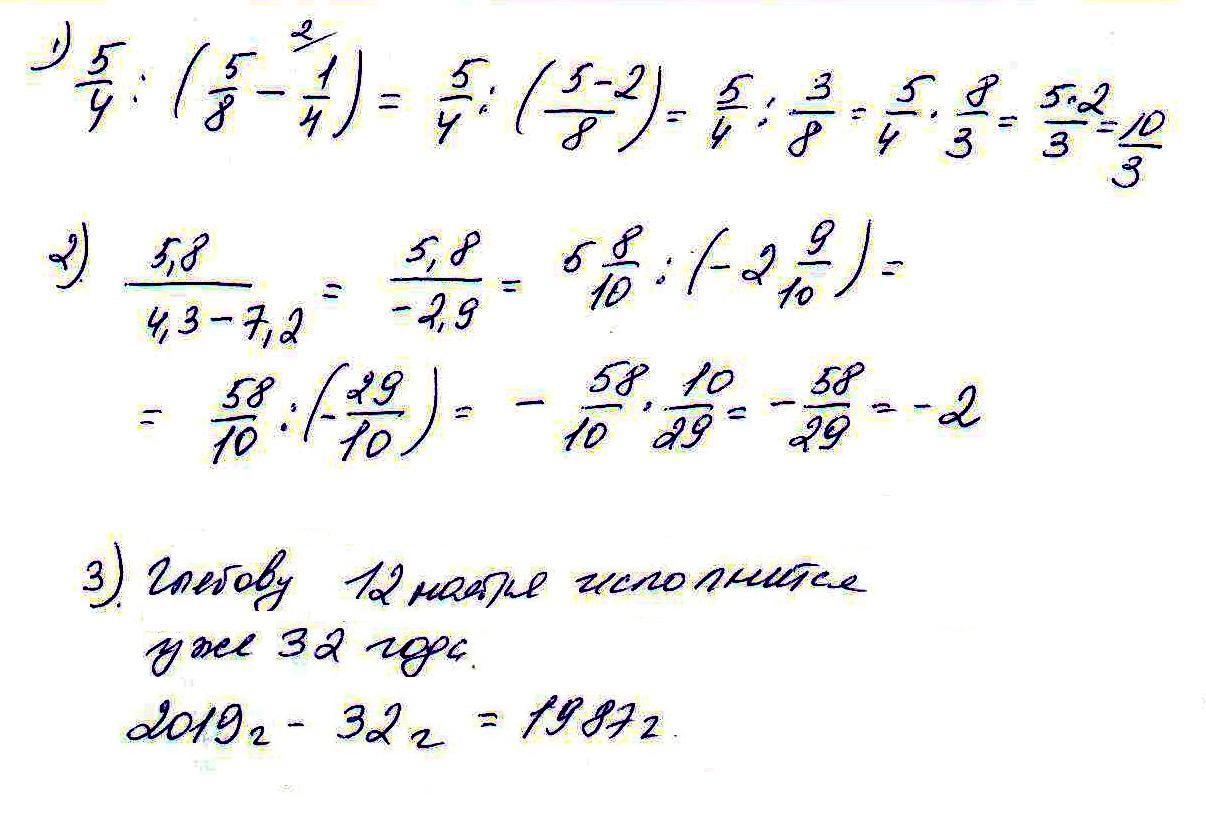 1) 5/4 : (5/8 - 1/4 2/) = 5/4 : (5-2/8) = 5/4 : 3/8 = 5/4 · 8/3 = 5·2/3 = 10/3
2). 5,8/4,3-7,2 = 5,8/-2,9 = 5 8/10 : (-2 9/10) =
= 58/10 : (-29/10) = - 58/10 · 10/29 = - 58/29 = -2
3). Глебову 12 ноября исполнится
уже 32 года.
2019г - 32г = 1987г.